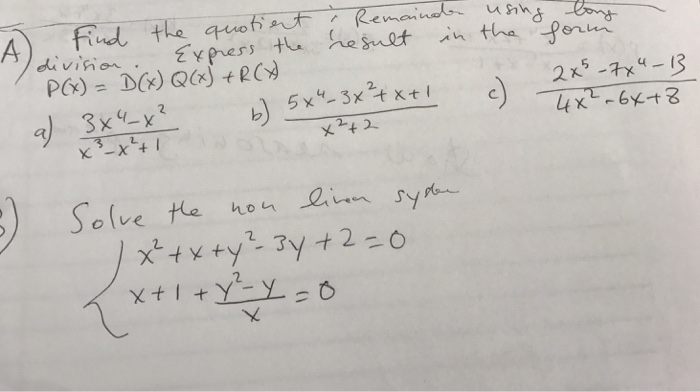 A) Find the quotient & Remainder using long
division. Express the result in the form
P(x) = D(x) Q(x) + R(x)
a) (3x⁴ - x²)/(x³ - x² + 1) b) (5x⁴ - 3x² + x + 1)/(x² + 2) c) (2x⁵ - 7x⁴ - 13)/(4x² - 6x + 8)
Solve the non linear system
x² + x + y² - 3y + 2 = 0
x + 1 + (y² - y)/x = 0